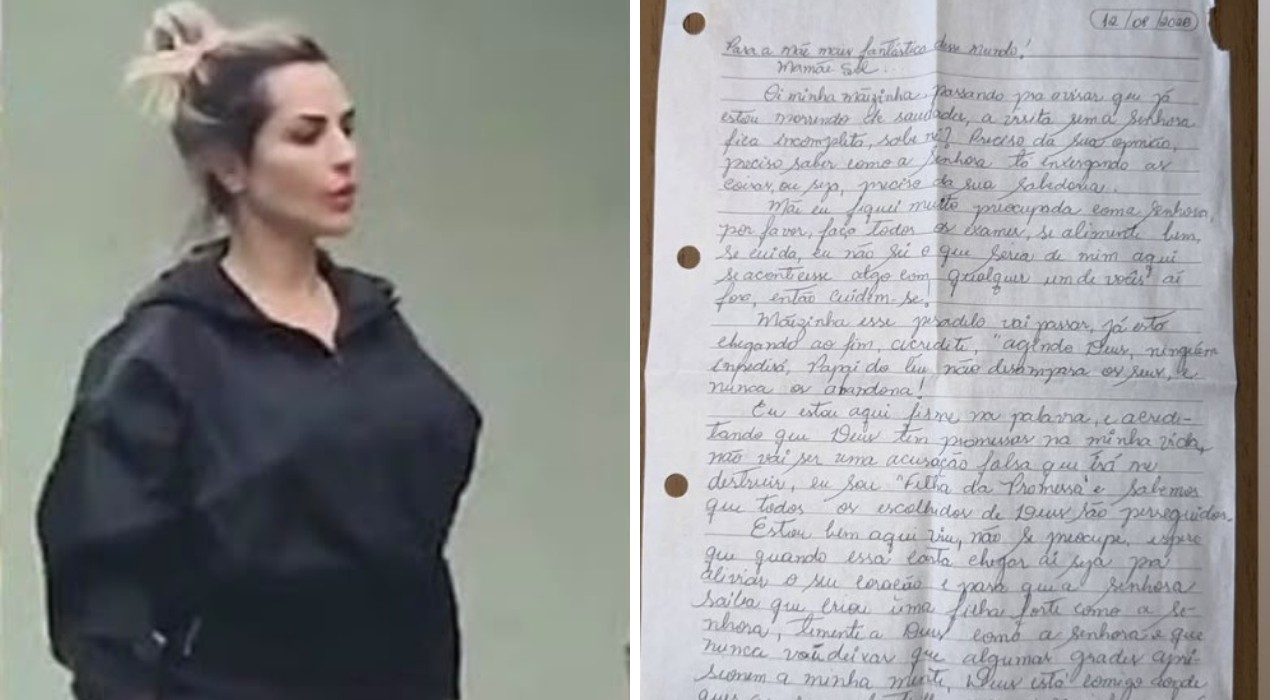 12/09/2023
Para a mãe mais fantástica desse mundo!
Mamãe Sol...
Oi minha mãizinha, passando pra avisar que já
estou morrendo de saudades, a visita sem a senhora
fica incompleta, sabe né? Preciso da sua opinião,
preciso saber como a senhora tá enxergando as
coisas, ou seja, preciso da sua sabedoria.
Mãe eu fiquei muito preocupada com a senhora,
por favor, faça todos os exames, se alimente bem,
se cuida, eu não sei o que seria de mim aqui
se acontecesse algo com qualquer um de vocês aí
fora, então cuidem-se.
Mãizinha esse pesadelo vai passar, já está
chegando ao fim, acredite, "agindo Deus, ninguém
impedirá, Papai do céu não desampara os seus, e
nunca os abandona!
Eu estou aqui firme na palavra, e acredi-
tando que Deus tem promessas na minha vida,
não vai ser uma acusação falsa que irá me
destruir, eu sou "Filha da Promessa" e sabemos
que todos os escolhidos de Deus são perseguidos.
Estou bem aqui viu, não se preocupe, espero
que quando essa carta chegar aí seja pra
aliviar o seu coração e para que a senhora
saiba que criou uma filha forte como a se-
nhora, temente a Deus como a senhora e que
nunca vai deixar que algumas grades apri-
sionem a minha mente, Deus está comigo onde